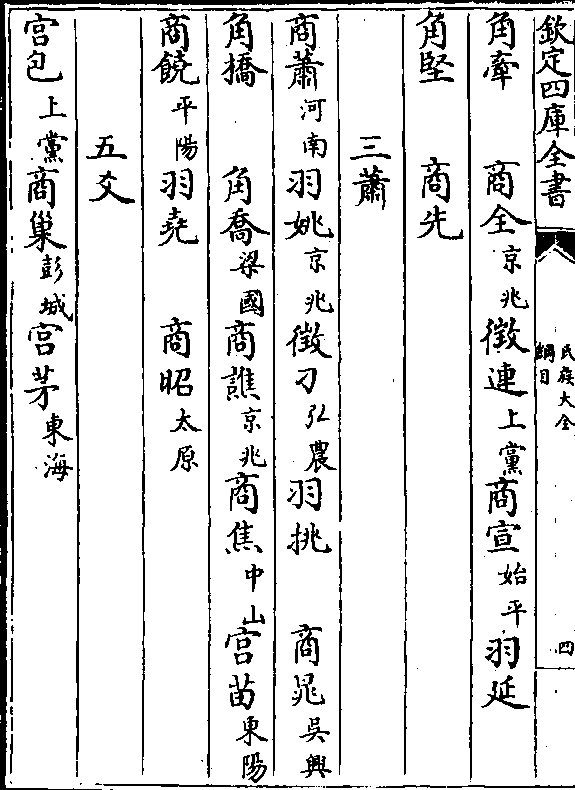 欽定四庫全書
氏族大全
綱目
四
角牽 商全京兆 徵連上黨 商宣始平 羽延
角堅 商先
三蕭
商蕭河南 羽姚京兆 徵刁弘農 羽挑 商晁吳興
角撟 角喬梁國 商譙京兆 商焦中山 宮苗東陽
商饒平陽 羽堯 商昭太原
五爻
宮包上黨 商巢彭城 宮茅東海